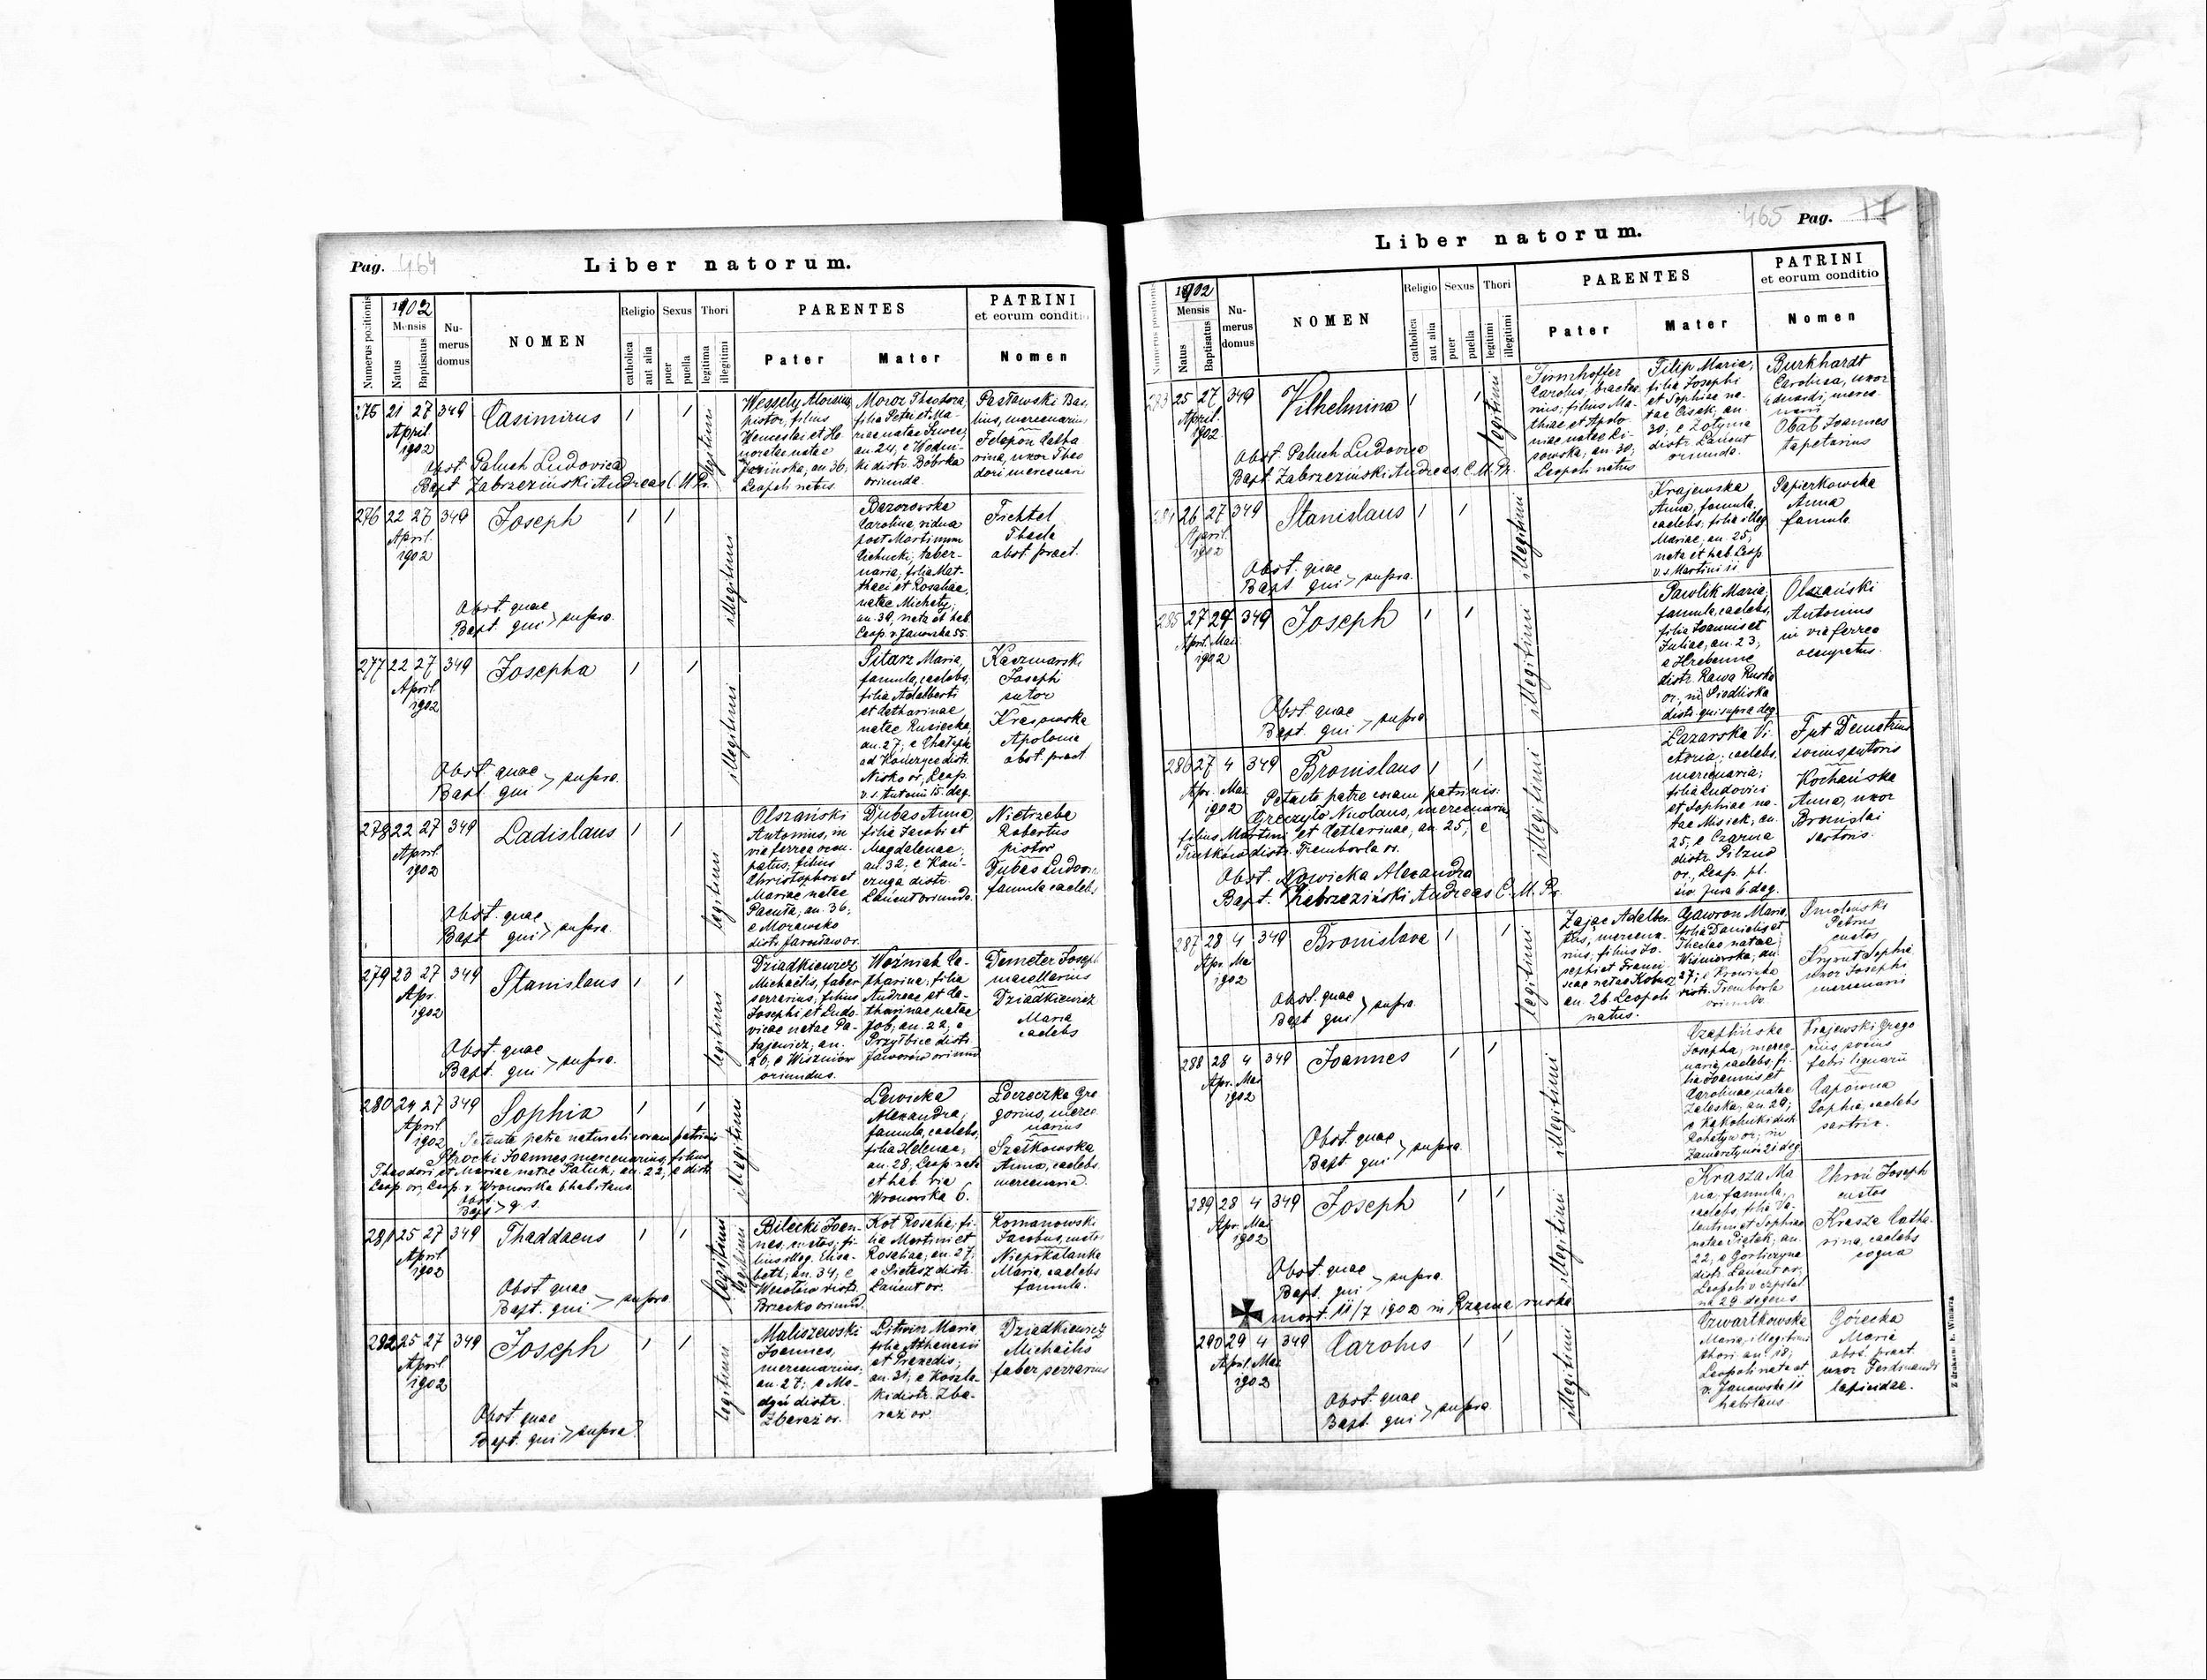 Pag. 464
Liber natorum.
Numerus positionis
1902
Mensis
Natus
Baptisatus
Nu-
merus
domus
NOMEN
Religio
catholica
aut alia
Sexus
puer
puella
Thori
legitima
illegitimi
PARENTES
Pater
Mater
PATRINI
et eorum conditio
Nomen
275 21 27 349 Casimirus
April
1902
Obst. Paluch Ludovica
Bapt. Zabrzeziński Andreas C. M. Pr.
legitimi
Wessely Aloisius
pistor, filius
Wenceslai et Ho
noratae natae
an. 36,
Leopoli natus
Moroz Theodora,
filia Petri et Ma-
riae natae
an. 24, e Wodni-
ki distr. Bóbrka
oriunda.
Pasławski Bas.
lius, mercenarius
Telepon Catha
rina, uxor Theo
dori mercenarii
276 22 27 349 Joseph
April
1902
Obst. quae
Bapt. qui > supra.
illegitimi
Bazorowska
Carolina, vidua
post Martinum
Cichucki; taber-
naria; filia Mat-
thaei et Rosaliae,
natae Michaty;
an. 39, nata et hab.
Leop. v. Janowska 55.
Fichtel
Thecla
obst. pract.
277 22 27 349 Josepha
April
1902
Obst. quae
Bapt. qui > supra.
illegitimi
Pitarz Maria,
famula, caelebs,
filia Adalberti
et Catharinae
natae Rusiecka,
an. 27; e Chałupk
ad Kończyce distr.
Nisko or., Leop.
v. s. Antonii 15. deg.
Kaczmarski
Josephi
sutor
Krasowska
Apolonia
obst. pract
278 22 27 349 Ladislaus
April
1902
Obst. quae
Bapt. qui > supra.
legitimi
Olszański
Antonius, in
via ferrea occu-
patus, filius
Christophori et
Mariae natae
Pacuta; an. 36;
e Morawsko
distr. Jarosław or.
Dubas Anna,
filia Jacobi et
Magdalenae;
an. 32; e Kań-
czuga distr.
Łańcut oriunda.
Nietrzeba
Robertus
pistor
Dubas Ludov
famula caelebs
279 23 27 349 Stanislaus
Apr.
1902
Obst. quae
Bapt. qui > supra.
legitimi
Dziadkiewicz
Michaelis, faber
serrarius, filius
Josephi et Ludo-
vicae natae Pa-
tajewicz; an.
26; e Wiszniów
oriundus.
Woźniak Ca-
tharina; filia
Andreae et Ca-
tharinae natae
Job; an. 22; e
Przyłbice distr.
Jaworów oriund
Demeter Joseph
macellarius
Dziadkiewicz
Maria
caelebs
280 24 27 349 Sophia
April
1902 Petente patre naturali coram patrinis
Strocki Joannes mercenarius, filius
Theodori et Mariae natae Patuk; an. 22; e distr.
Leop. or; Leop. v. Wronowska 6 habitans
Obst.
Bapt. > q. s.
illegitimi
Lewicka
Alexandra,
famula, caelebs,
filia Helenae;
an. 28; Leop. nata
et hab. via
Wronowska 6.
Łoczeczko Gre
gorius, merce
narius
Szałkowska
Anna, caelebs
mercenaria.
281 25 27 349 Thaddaeus
April
1902
Obst. quae
Bapt. qui > supra.
legitimi
Bilecki Joan-
nes, custos; fi-
lius illeg. Elisa-
beth; an. 34; e
Wesołów distr.
Brzesko oriund.
Kot Rosalia; fi-
lia Martini et
Rosaliae; an. 27;
e Sietesz distr.
Łańcut or.
Romanowski
Jacobus, custo
Niepokalanka
Maria, caelebs
famula.
282 25 27 349 Joseph
April
1902
Obst. quae
Bapt. qui > supra.
legitimi
Maliszewski
Joannes,
mercenarius;
an. 27; e Mo-
distr.
Zbaraż or.
Litwin Maria
filia Athanasii
et Praxedis;
an. 31; e Koszla-
ki distr. Zba-
raż or.
Dziadkiewicz
Michaelis
faber serrarius
465 Pag.
Liber natorum.
Numerus positionis
1902
Mensis
Natus
Baptisatus
Nu-
merus
domus
NOMEN
Religio
catholica
aut alia
Sexus
puer
puella
Thori
legitimi
illegitimi
PARENTES
Pater
Mater
PATRINI
et eorum conditio
Nomen
283 25 27 349 Vilhelmina
April.
1902
Obst. Paluch Ludovica
Bapt. Zabrzeziński Andreas, C. M. Pr.
legitimi
Tinnhoffer
Carolus, bractea
rius; filius Ma-
thiae et Apolo-
niae natae Li-
powska; an. 30;
Leopoli natus
Filip Maria,
filia Josephi
et Sophiae na-
tae Cisek, an.
30; e Żołynia
distr. Łańcut
oriunda.
Burkhardt
Carolina, uxor
Eduardi, merce-
narii
Obat Joannes
tapetarius
284 26 27 349 Stanislaus
April
1902
Obst. quae
Bapt. qui > supra.
illegitimi
Krajewska
Anna, famula,
caelebs, filia illeg
Mariae; an. 25,
nata et hab. Leop.
v. s. Martini 11
Papierkowska
Anna
famula
285 27 29 349 Joseph
April. Mai
1902
Obst. quae
Bapt. qui > supra
illegitimi
Pawlik Maria;
famula, caelebs,
filia Joannis et
Juliae; an. 23;
e Hrebenne
distr. Rawa Ruska
or., in Siedliska
distr. qui supra deg.
Olszański
Antonius
in via ferrea
occupatus.
286 27 4 349 Bronislaus
Apr. Mai
1902 Petente patre coram patrinis:
Greczyło Nicolaus, mercenarius
filius Martini et Catharinae; an. 25; e
distr. Trembowla or.
Obst. Nowicka Alexandra
Bapt. Zabrzeziński Andreas C. M. Pr.
illegitimi
Łazarska Vi-
ctoria; caelebs,
mercenaria;
filia Ludovici
et Sophiae na-
tae Misiek; an.
25; e Czarna
distr. Pilzno
or., Leop. pl.
św. Jura 6 deg.
Fut Demetrius
socius sutoris
Kochańska
Anna, uxor
Bronislai
sartoris.
287 28 4 349 Bronislava
Apr. Mai
1902
Obst. quae
Bapt qui > supra.
legitimi
Zając Adalber-
tus, mercena-
rius, filius Jo-
sephi et Franci-
scae natae
an. 26. Leopoli
natus.
Gawron Maria,
filia Danielis et
Theclae natae
Wiśniowska; an.
27; e Krowinka
distr. Trembowla
oriunda.
Smoleński
Petrus
custos
Sophia
uxor Josephi
mercenarii
288 28 4 349 Joannes
Apr. Mai
1902
Obst. quae
Bapt. qui > supra.
illegitimi
Czaplińska
Josepha, merce-
naria, caelebs, fi-
lia Joannis et
Carolinae natae
Zaleska; an. 29;
e Kąkolniki distr.
Rohatyn or; in
Zamarstynów 21 deg
Krajewski Grego
rius, socius
fabri lignarii
Łapówna
Sophia, caelebs
sartrix.
289 28 4 349 Joseph
Apr. Mai
1902
Obst. quae
Bapt. qui > supra.
mort. 11/7 1902 in Rzęsna ruska
illegitimi
Krasza Ma
ria, famula,
caelebs, filia Va-
lentini et Sophiae
natae Piętak; an.
22; e Gorliczyna
distr. Łańcut or,
Leopoli v. szpital
na 29 degens.
Chroń Joseph
custos
Krasza Catha-
rina, caelebs
coqua
290 29 4 349 Carolus
April. Mai
1902
Obst. quae
Bapt. qui > supra.
illegitimi
Czwartkowska
Maria, illegitimi
thori an. 18;
Leopoli nata et
v. Janowska 11
habitans
Górecka
Maria
obst. pract.
uxor Ferdinandi
lapicidae.
Z drukarni E. Winiarza